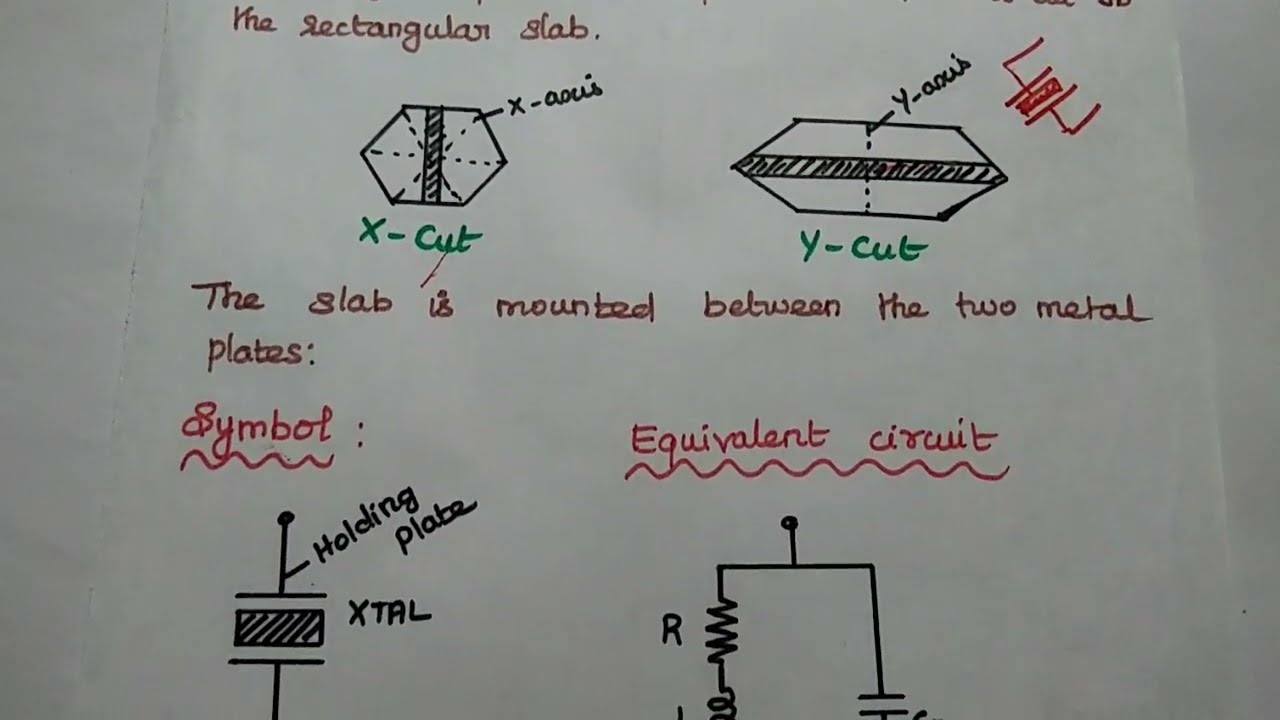 the rectangular slab.
X-axis
Y-axis
X-Cut
Y-Cut
The slab is mounted between the two metal
plates:
Symbol :
Equivalent circuit
Holding
plate
XTAL
R